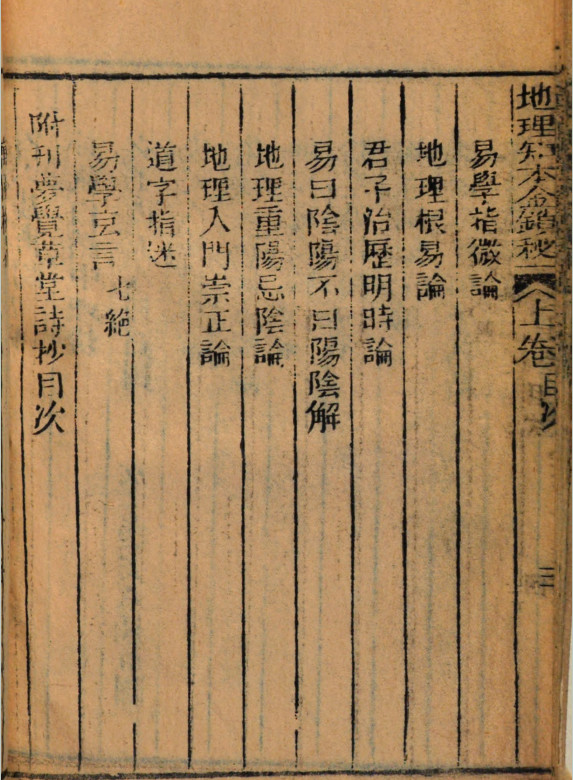 地理知本金鎖秘
上卷目次
三
易學指微論
地理根易論
君子治歷明時論
易曰陰陽不曰陽陰解
地理重陽忌陰論
地理入門崇正論
道字指迷
易學玄言 七絕
附刊夢覺草堂詩抄目次